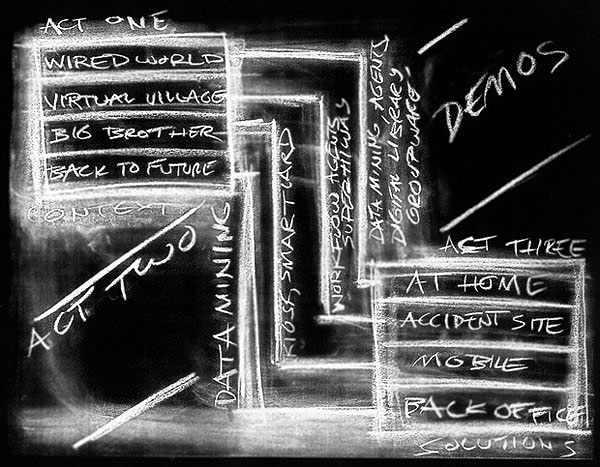 ACT ONE
WIRED WORLD
VIRTUAL VILLAGE
BIG BROTHER
BACK TO FUTURE
CONTEXT
ACT TWO
DATA MINING
KIOSK, SMART CARD
WORKFLOW AGENTS
SUPERHIWAY
DATA MINING AGENTS
DIGITAL LIBRARY
GROUPWARE
DEMOS
ACT THREE
AT HOME
ACCIDENT SITE
MOBILE
BACK OFFICE
SOLUTIONS